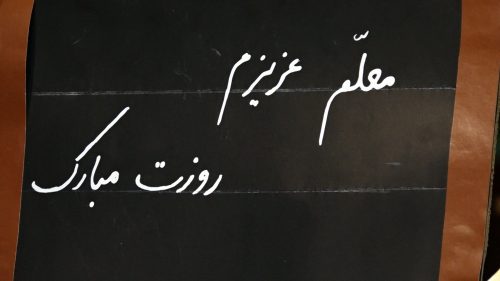 معلّم عزیزم
روزت مبارک